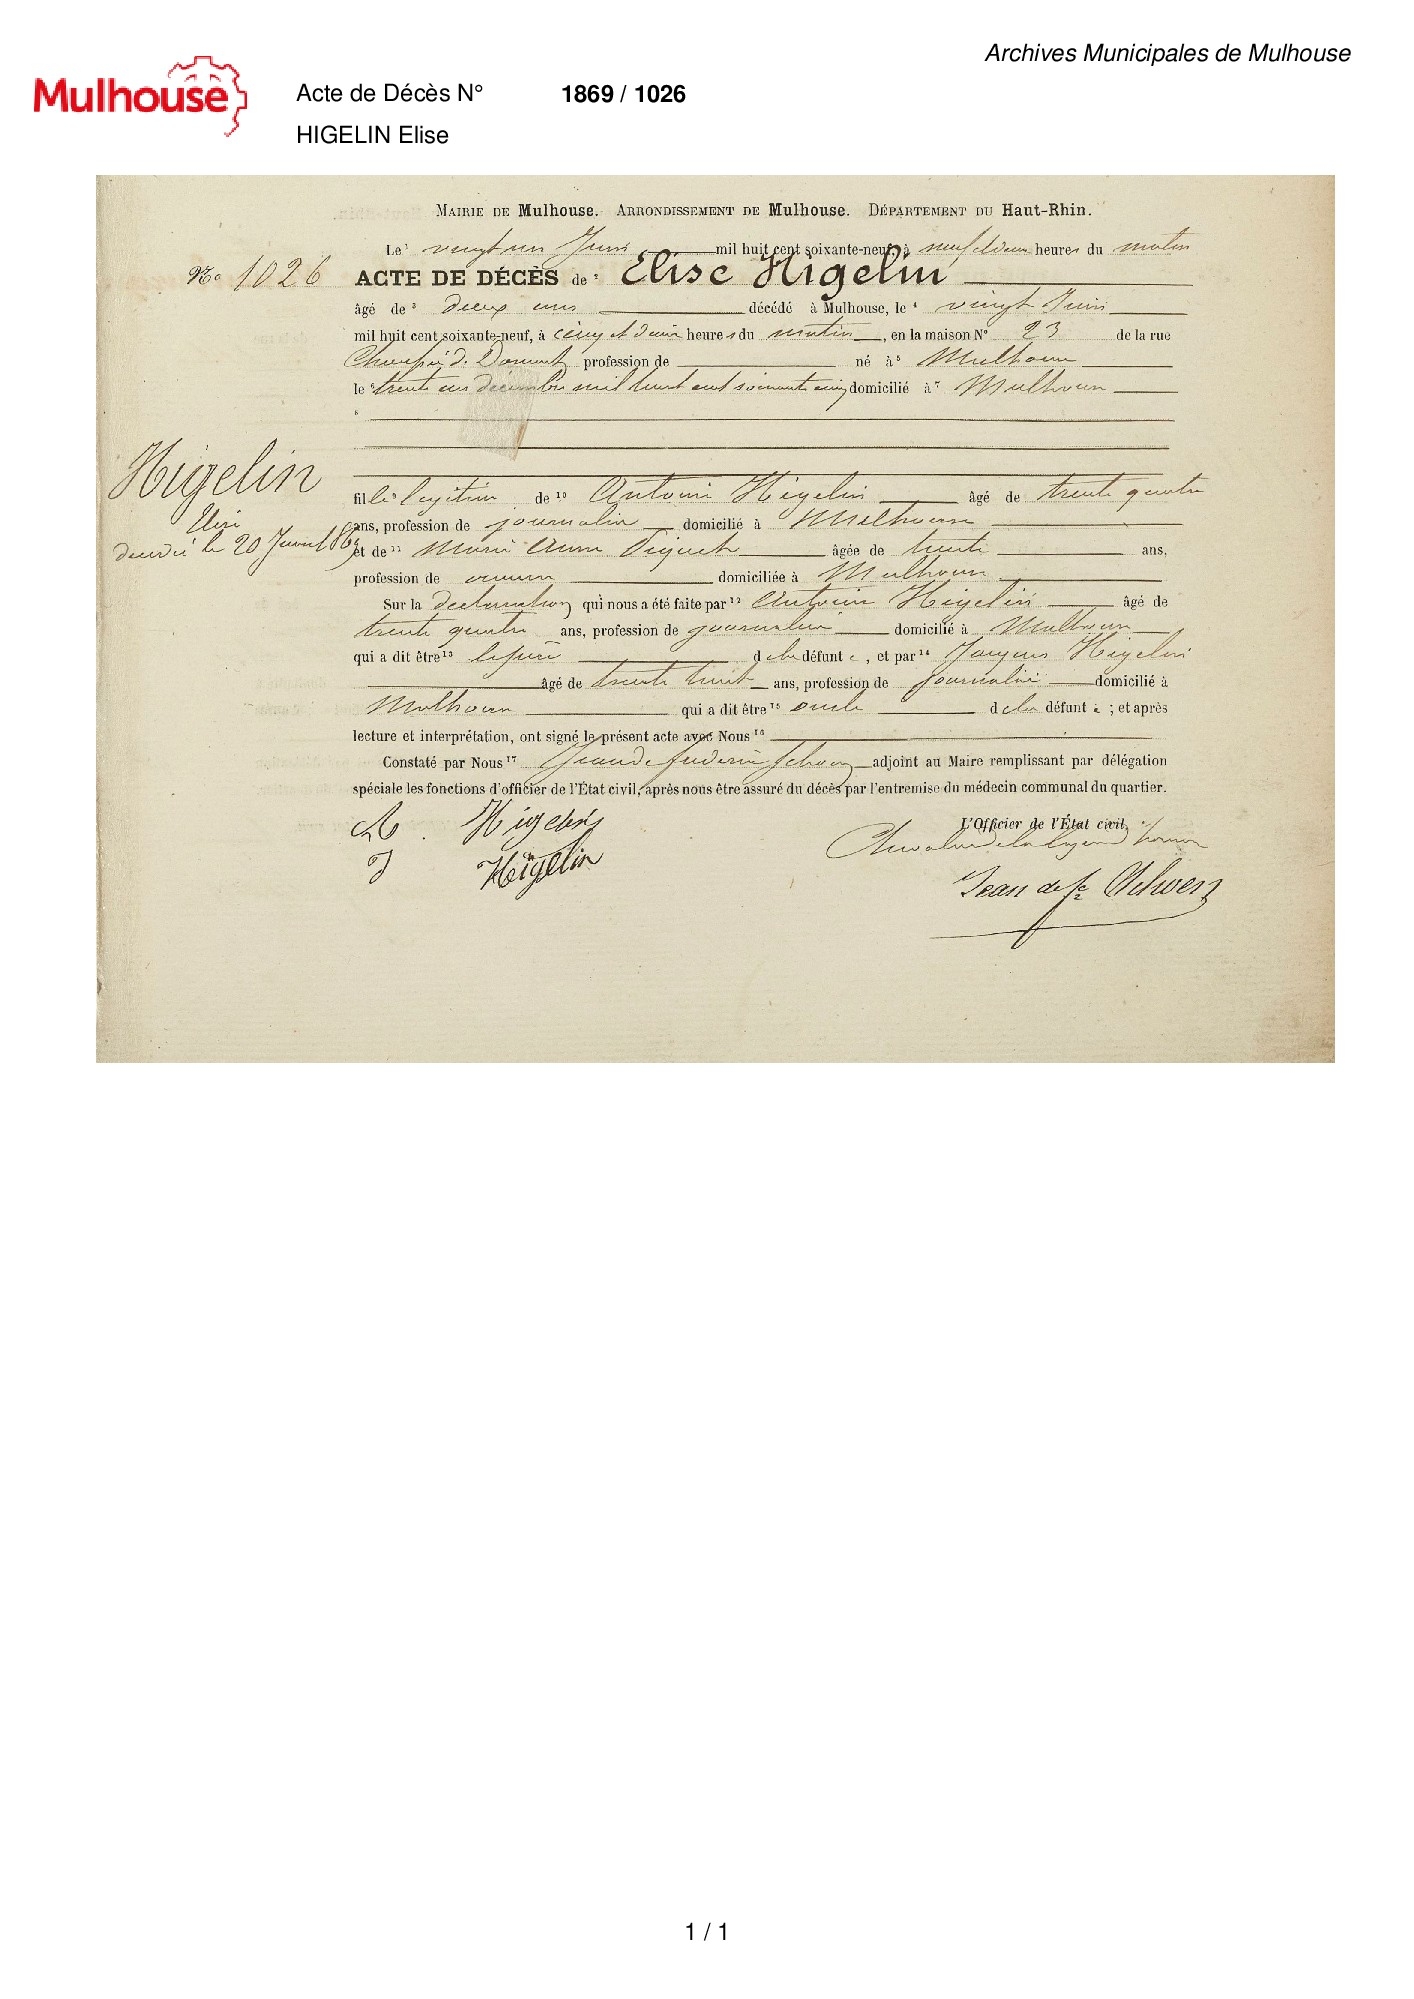 Archives Municipales de Mulhouse
Mulhouse
Acte de Décès N° 1869 / 1026
HIGELIN Elise
MAIRIE DE Mulhouse. ARRONDISSEMENT DE Mulhouse. DÉPARTEMENT DU Haut-Rhin.
Le 1 vingt un Juin mil huit cent soixante-neuf, à neuf et demi heures du matin
No 1026 ACTE DE DÉCÈS de 2 Elise Higelin
âgé de 3 deux ans décédé à Mulhouse, le 4 vingt Juin
mil huit cent soixante-neuf, à cinq et demi heures du matin, en la maison N° 23 de la rue
profession de né à 5 Mulhouse
le 6 trente un décembre mil huit cent soixante cinq domicilié à 7 Mulhouse
8
Higelin
fille 9 légitime de 10 Antoine Higelin âgé de trente quatre
Elise
ans, profession de journalier domicilié à Mulhouse
décédée le 20 Juin 1869
et de 11 Marie Anne âgée de trente ans,
profession de domiciliée à Mulhouse
Sur la declaration qui nous a été faite par 12 Antoine Higelin âgé de
trente quatre ans, profession de journalier domicilié à Mulhouse
qui a dit être 13 le père de la défunte, et par 14 Jacques Higelin
âgé de trente huit ans, profession de journalier domicilié à
Mulhouse qui a dit être 15 oncle de la défunte ; et après
lecture et interprétation, ont signé le présent acte avec Nous 16
Constaté par Nous 17 Jean de frédéric Schoen adjoint au Maire remplissant par délégation
spéciale les fonctions d'officier de l'État civil, après nous être assuré du décès par l'entremise du médecin communal du quartier.
A. Higelin
J Higelin
L'Officier de l'État civil,
Chevalier de la Légion d'honneur
Jean de fc Schoen
1 / 1